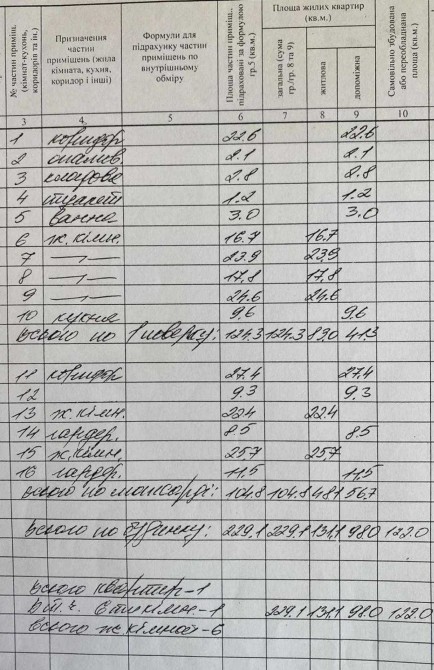 № частин приміщ. (кімнат-кухонь, коридорів та ін.)
Призначення частин приміщень (жила кімната, кухня, коридор і інші)
Формули для підрахунку частин приміщень по внутрішньому обміру
Площа частин приміщ., підраховані за формулою гр.5 (кв.м.)
Площа жилих квартир (кв.м.)
загальна (сума гр./гр. 8 та 9)
житлова
допоміжна
Самовільно збудована або переобладнана площа (кв.м.)
3 4 5 6 7 8 9 10
1 коридор 22.6 22.6
2 опалив. 2.1 2.1
3 кладова 2.8 2.8
4 туалет 1.2 1.2
5 ванна 3.0 3.0
6 ж. кімн. 16.7 16.7
7 —〃— 23.9 23.9
8 —〃— 17,8 17,8
9 —〃— 24.6 24.6
10 кухня 9.6 9.6
всього по 1 поверху: 124.3 124.3 83.0 41.3
11 коридор 27.4 27.4
12 9.3 9.3
13 ж. кімн. 22.4 22.4
14 гардер. 8.5 8.5
15 ж. кімн. 25.7 25.7
16 гардер. 11,5 11,5
всього по мансарді: 104.8 104.8 48.1 56.7
всього по будинку: 229.1 229.1 131,1 98.0 122.0
всього квартир-1
в т.ч. 6 ти кімн.-1 229.1 131,1 98.0 122.0
всього ж кімнат-6